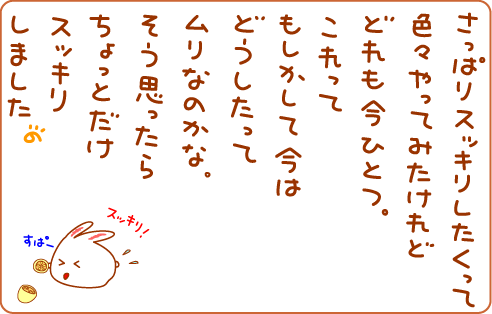 さっぱりスッキリしたくって
色々やってみたけれど
どれも今ひとつ。
これって
もしかして今は
どうしたって
ムリなのかな。
そう思ったら
ちょっとだけ
スッキリ
しました
スッキリ!
すぱー